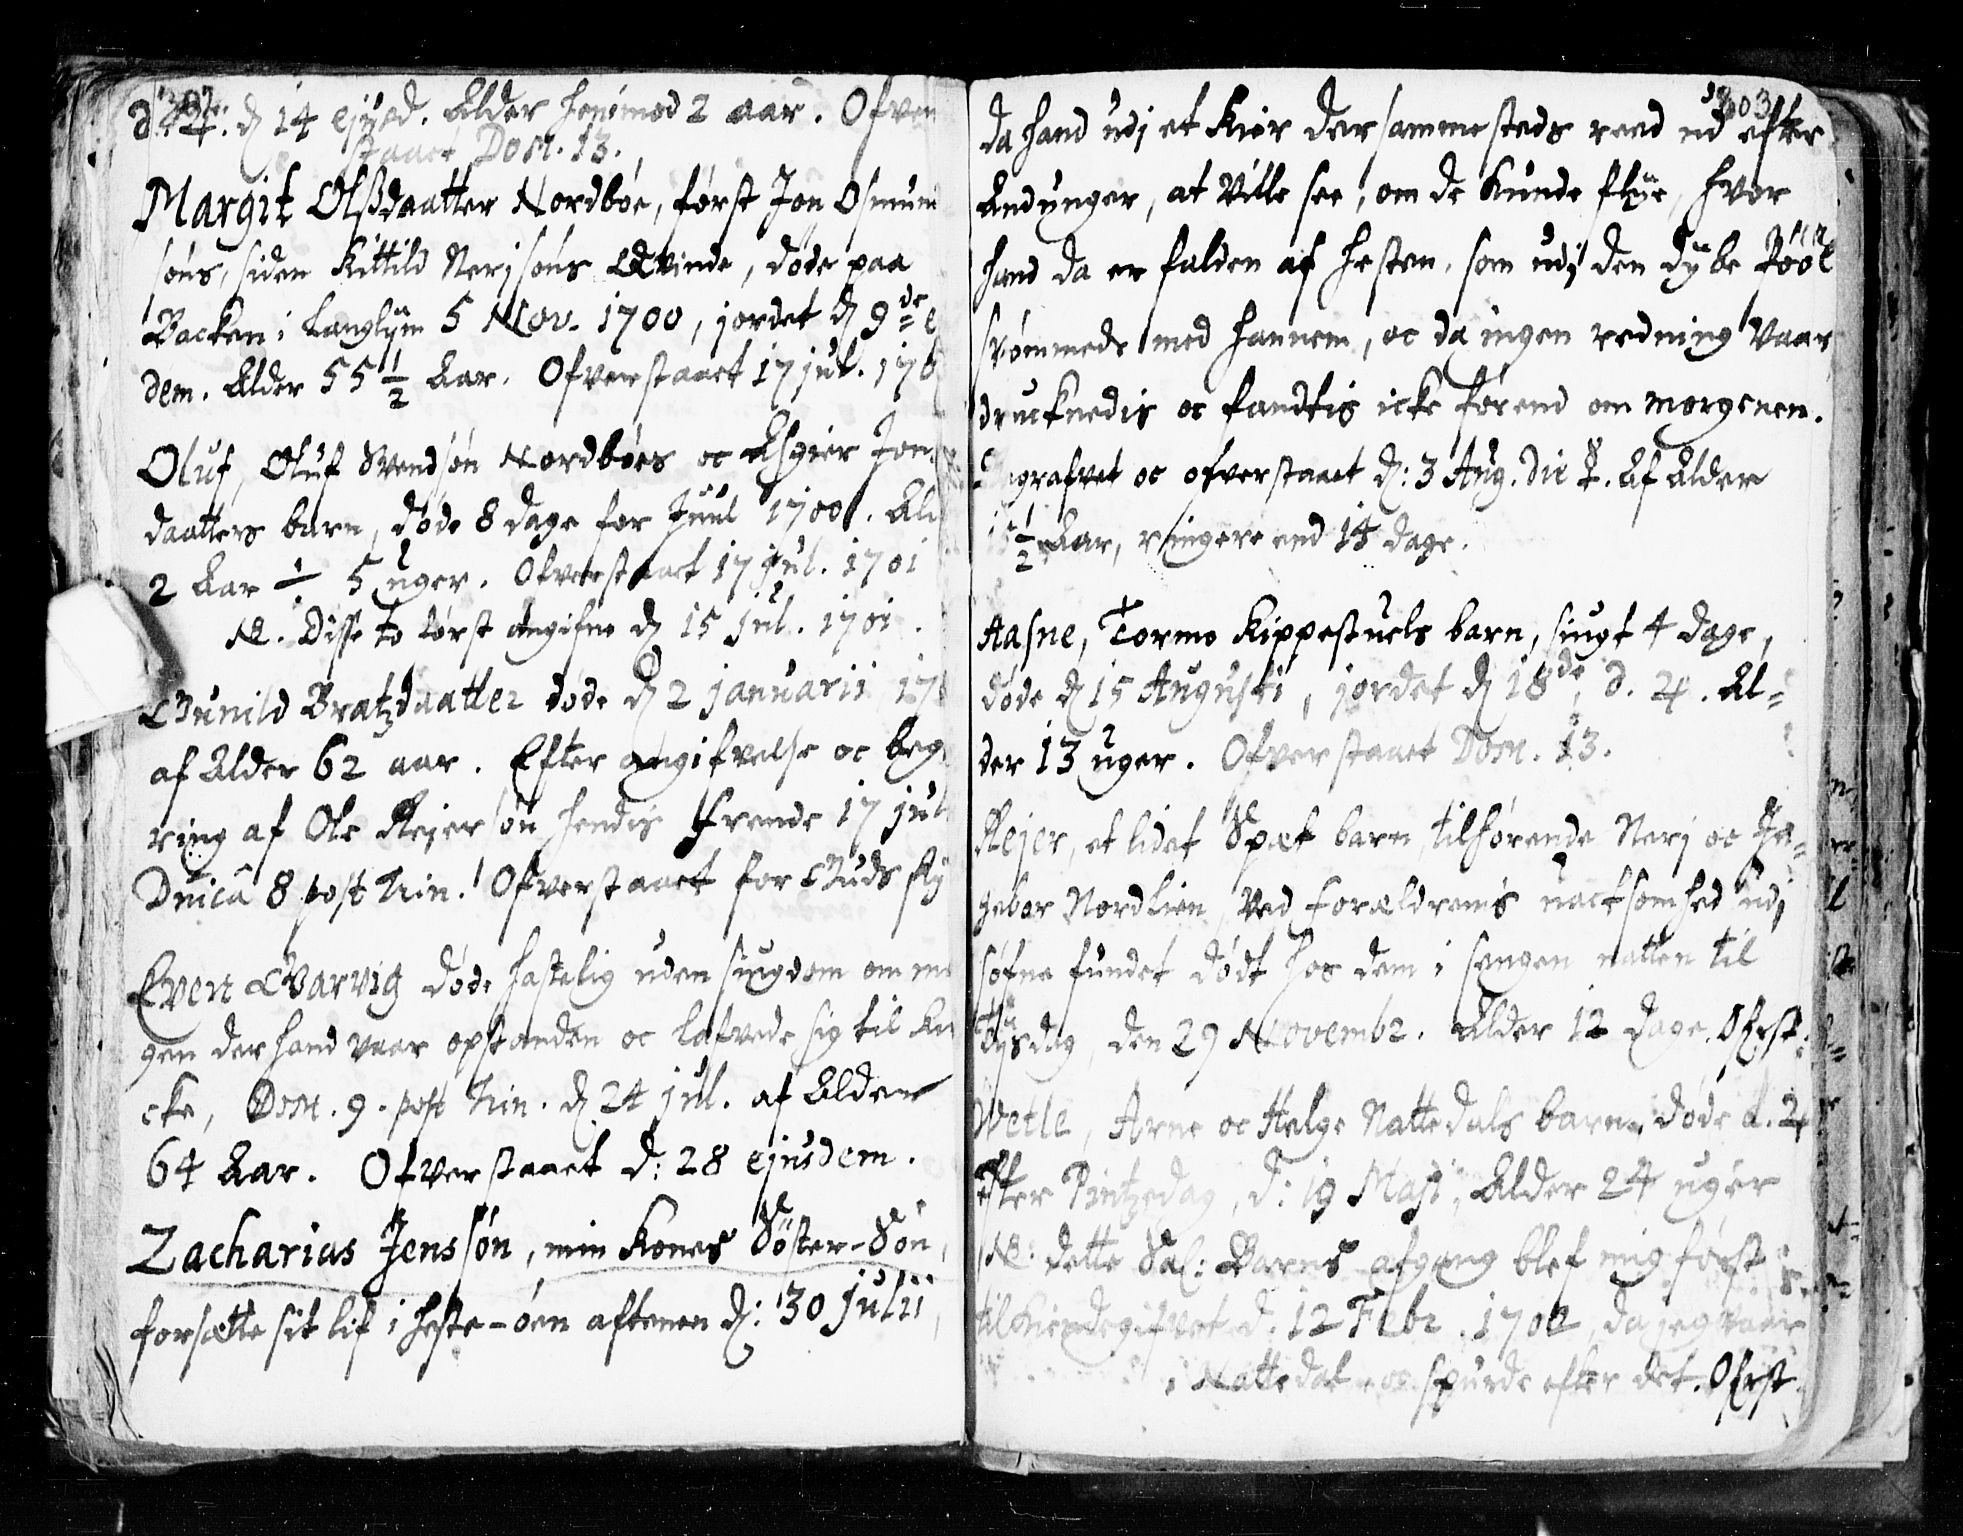 d. 24. d 14 ejusd. Alder henimod 2 aar. Ofver
staaet Dom. 13.
Margit Olßdaatter Nordbøe, først Jon Osmun
søns, siden Kittild Nerjsøns Qvinde, døde paa
Backen i Langlijm 5 Nov. 1700, jordet d 9de e
dem. Alder 55 1/2 Aar. Ofverstaaet 17 jul. 170
Oluf, Oluf Svendsøn Nordbøes oc Asgier Jon
daatters barn, døde 8 dage for Juul 1700. Al
2 Aar ÷ 5 uger. Ofverstaaet 17 jul. 1701
NB. Disse to først angifne d 15 jul. 1701.
Gunild Bratzdaatter døde d 2 januarii 170
af Alder 62 aar. Efter angifvelse oc beg
ring af Ole Rejersøn hendis frende 17 jul
Dnica 8 post Trin. Ofverstaaet for Guds
Even Gvarvig døde hastelig uden siugdom om mo
gen der hand vaar opstanden oc lafvede sig til Kir
cke, Dom. 9. post Trin. d 24 jul. af Alder
64 Aar. Ofverstaaet d: 28 ejusdem.
Zacharias Jenssøn, min Kones Søster-Søn,
forsatte sit lif i Heste-øen aftenen d: 30 Julii,
303
da hand udj et Kier dersammesteds reed ud efter
Andunger, at ville see, om de kunde flye, hvor
hand da er falden af hesten, som udj den dybe Pøöl
svømmede med hannem, oc da ingen redning vaar
drucknedis oc fandtis icke førend om morgenen.
Begrafvet oc ofverstaaet d: 3 Aug. die ☿. Af Alder
15 1/2 Aar, ringere end 14 dage.
Aasne, Tormo Kippestuels barn, siugt 4 dage,
døde d 15 Augusti, jordet d 18de, d. 24. Al=
der 13 uger. Ofverstaaet Dom. 13.
Rejer, et lidet Spæt barn, tilhørende Nerj oc In=
gebor Nordlien, ved Forældrenis uactsomhed udj
søfne fundet dødt hos dem i sengen natten til
Tijsdag, den 29 Novembr. Alder 12 dage. Ofrst.
Wetle, Arne oc Helge Nattedals barn døde d. 24
efter Pintzedag, d: 19 Maji, Alder 24 uger
NB: dette Sal: Barns afgang blef mig først
tilkiendegifvet d: 12 Febr. 1702, da jeg vaar
i Nattedal oc spurde efter det. Ofrst.